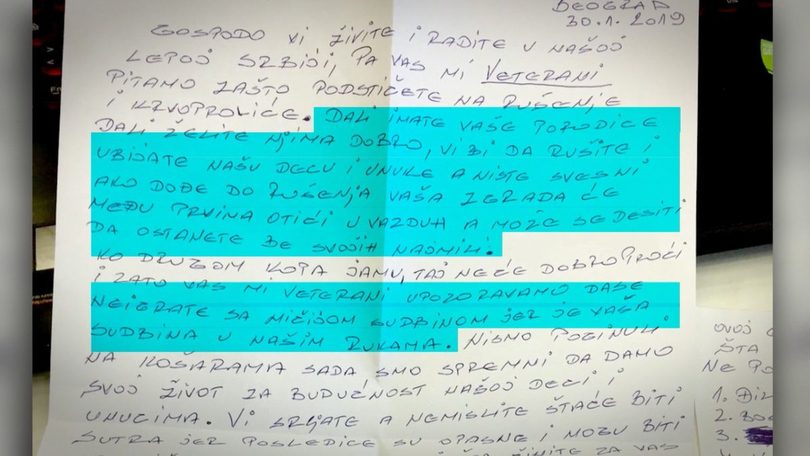 BEOGRAD
30.1.2019
GOSPODO VI ŽIVITE I RADITE U NAŠOJ
LEPOJ SRBIJI, PA VAS MI VETERANI
PITAMO ZAŠTO PODSTIČETE NA RUŠENJE
I KRVOPROLIĆE. DALI IMATE VAŠE PORODICE
DALI ŽELITE NJIMA DOBRO, VI BI DA RUŠITE I
UBIJATE NAŠU DECU I UNUKE A NISTE SVESNI
AKO DOĐE DO RUŠENJA VAŠA ZGRADA ĆE
MEĐU PRVIMA OTIĆI U VAZDUH A MOŽE SE DESITI
DA OSTANETE BE SVOJIH NAJMILI.
KO DRUGOM KOPA JAMU, TAJ NEĆE DOBRO PROĆI
I ZATO VAS MI VETERANI UPOZORAVAMO DASE
NEIGRATE SA NIČIJOM SUDBINOM JER JE VAŠA
SUDBINA U NAŠIM RUKAMA. NISMO POGINULI
NA KOŠARAMA SADA SMO SPREMNI DA DAMO
SVOJ ŽIVOT ZA BUDUĆNOST NAŠOJ DECI I
UNUCIMA. VI SRLJATE A NEMISLITE ŠTAĆE BITI
SUTRA JER POSLEDICE SU OPASNE I MOGU BITI
ZA VAS
OVOJ
ŠTA
NE PO
1. DIZ
2. BO
3.